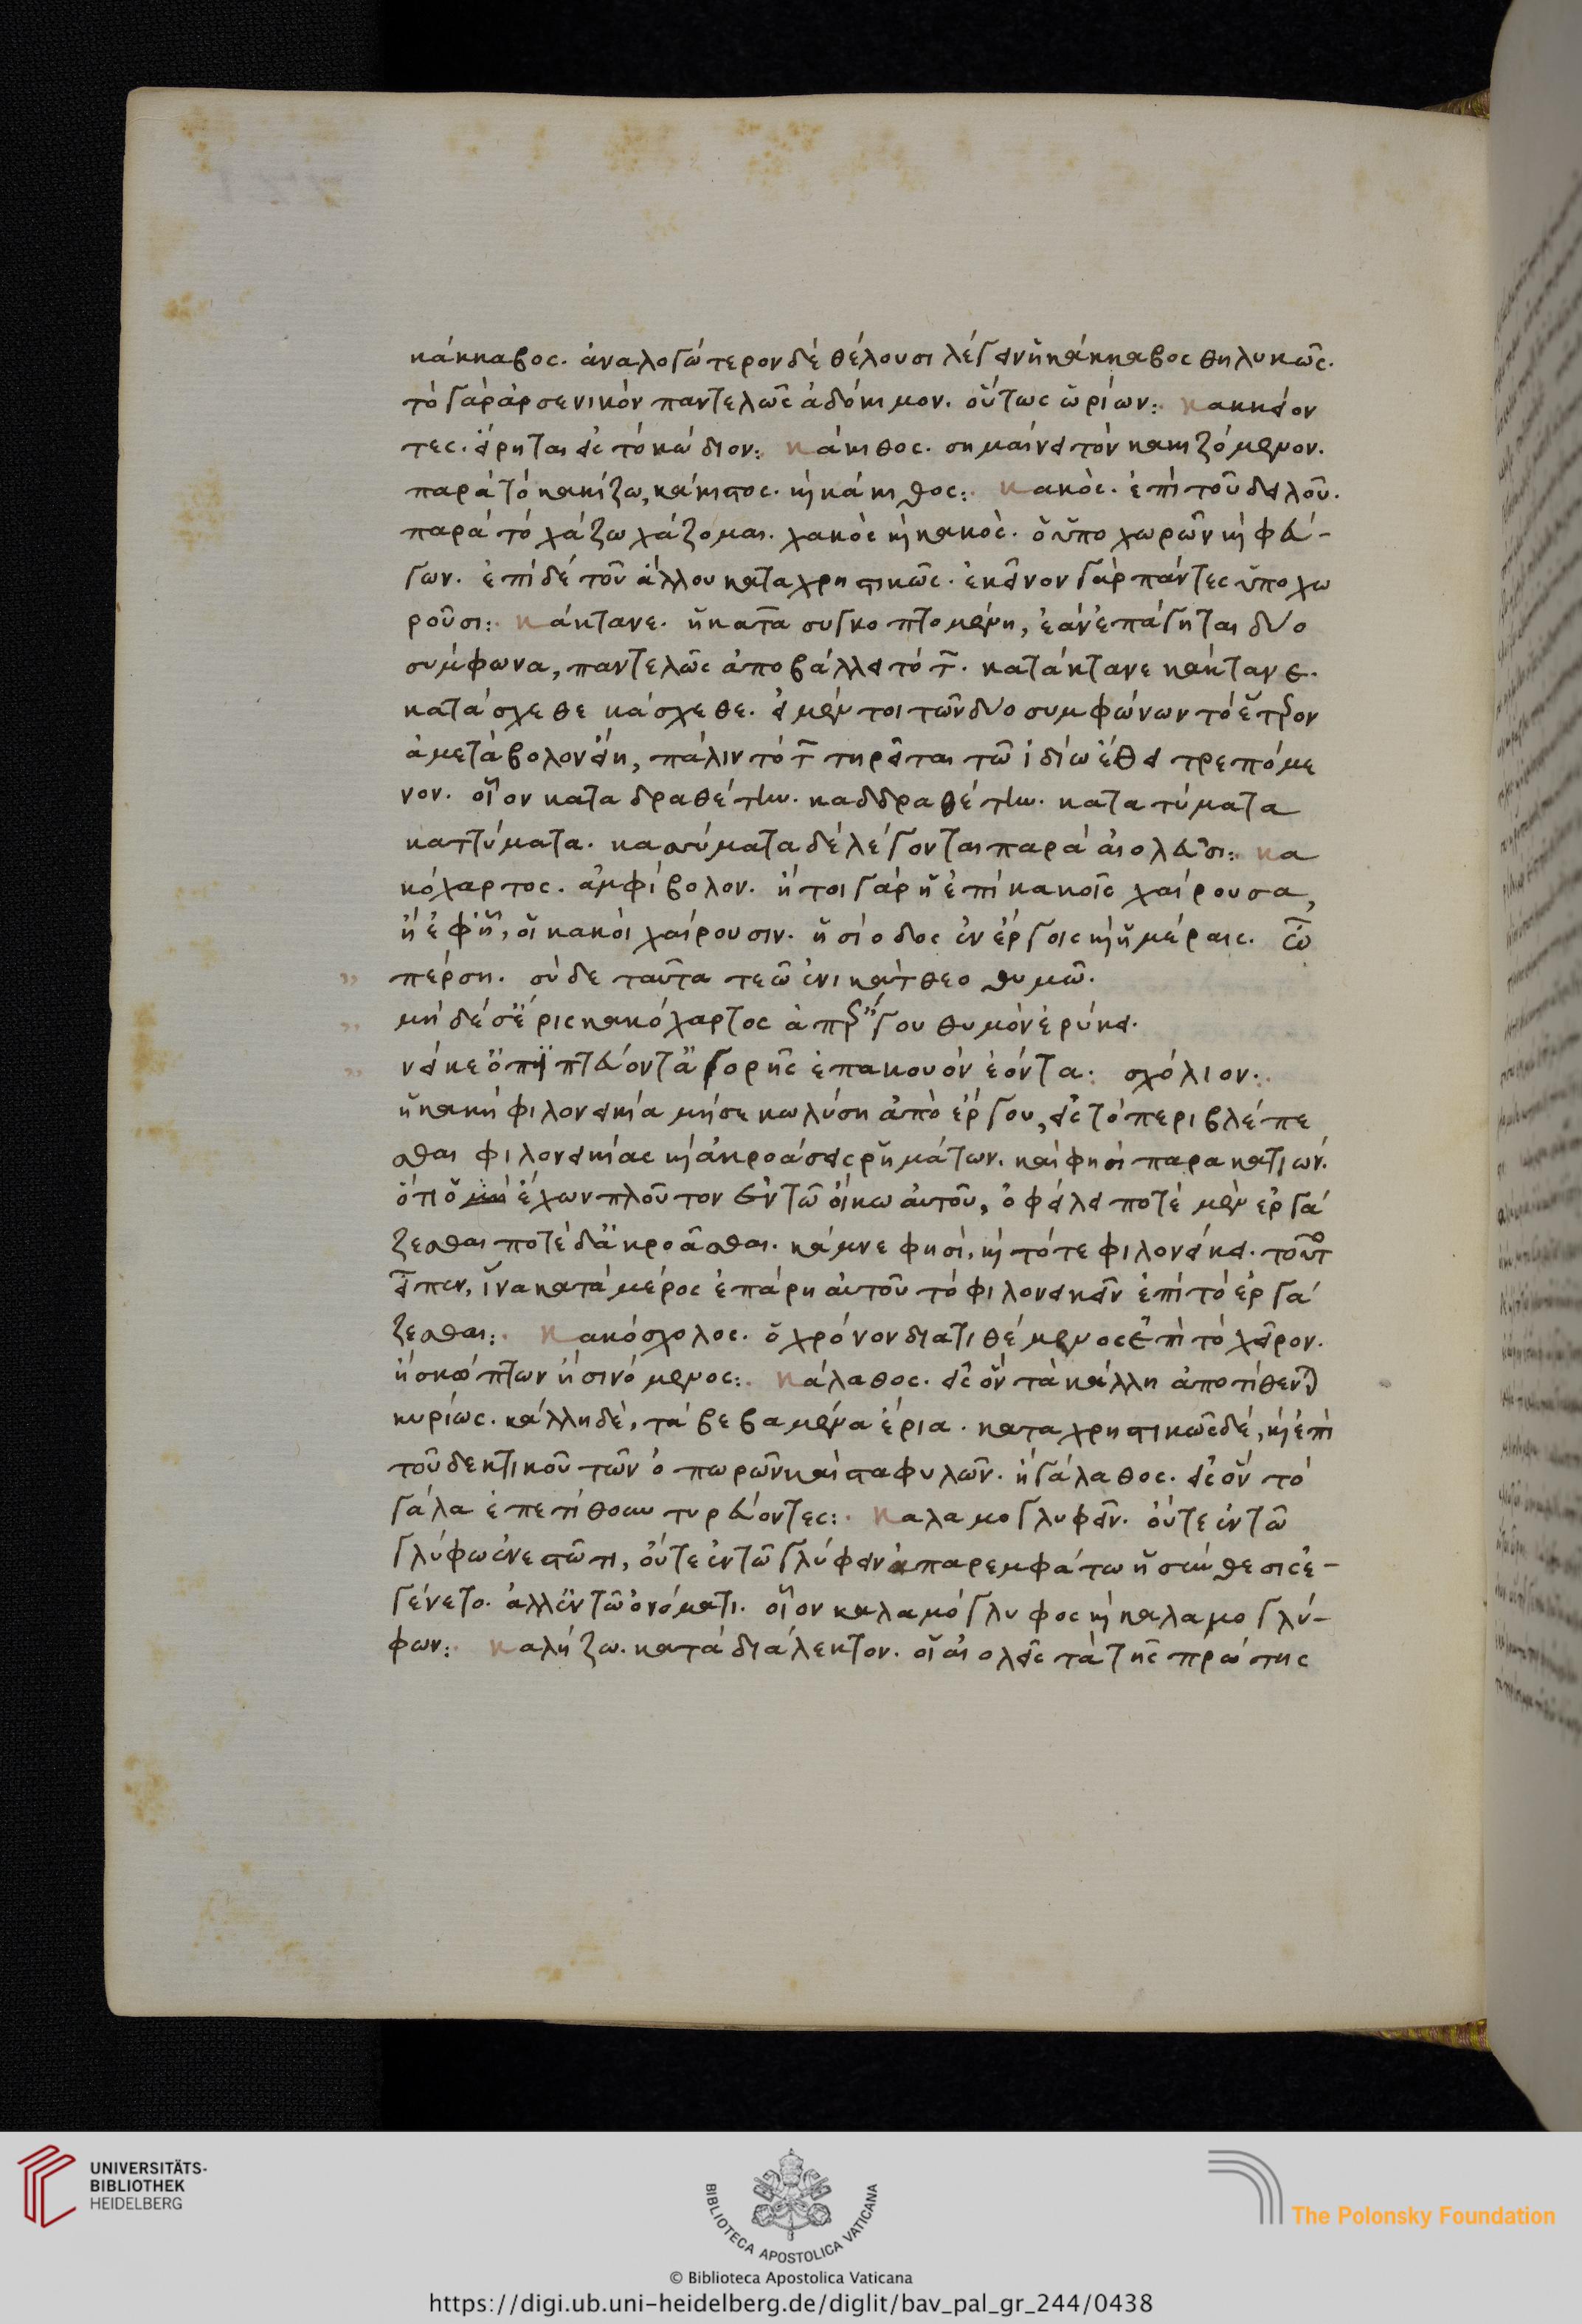 κάκκαβος. ἀναλογώτερον δὲ θέλουσι λέγειν ἡ κάκκαβος θηλυκῶς.
τὸ γὰρ ἀρσενικὸν παντελῶς ἀδόκιμον. οὕτως ὠρίων: κακκείον
τες. εἴρηται εἰς τὸ κώδιον: κάκιθος. σημαίνει τὸν κακιζόμενον.
παρὰ τὸ κακίζω, κάκιστος. καὶ κάκιθος: κακός. ἐπὶ τοῦ δειλοῦ.
παρὰ τὸ χάζω χάζομαι. χακὸς καὶ κακὸς. ὁ ὑποχωρῶν καὶ φεύ-
γων. ἐπὶ δὲ τοῦ ἄλλου καταχρηστικῶς. ἐκεῖνον γὰρ πάντες ὑποχω
ροῦσι: κάκτανε. ἡ κατὰ συγκοπτομένη, ἐὰν ἐπάγηται δύο
σύμφωνα, παντελῶς ἀποβάλλει τὸ τ. κατάκτανε κάκτανε.
κατάσχεθε κάσχεθε. εἰ μέν τοι τῶν δύο συμφώνων τὸ ἕτερον
ἀμετάβολον εἴη, πάλιν τὸ τ τηρεῖται τῷ ἰδίω ἔθει τρεπόμε
νον. οἷον καταδραθέτην. καδδραθέτην. κατατύματα
καττύματα. κασύματα δὲ λέγονται παρὰ αἰολεῦσι: κα
κόχαρτος. ἀμφίβολον. ἤτοι γὰρ ἡ ἐπὶ κακοῖς χαίρουσα,
ἢ ἐφ ᾗ, οἱ κακοὶ χαίρουσιν. ἡσίοδος ἐν ἔργοις καὶ ἡμέραις. ὦ
πέρση. σὺ δε ταῦτα τεῷ ἐνικάτθεο θυμῷ.
μηδέ σ' ἔρις κακόχαρτος ἀπ' ἔργου θυμὸν ἐρύκει.
νείκε ὀπιπτεύοντ' ἀγορῆς ἐπακουὸν ἐόντα: σχόλιον:
ἡ κακὴ φιλονεικία μή σε κωλύση ἀπὸ ἔργου, εἰς τὸ περιβλέπε
σθαι φιλονεικίας καὶ ἀκροάσεις ῥημάτων. καί φησι παρακατιών.
ὅτι ὁ μὴ ἔχων πλοῦτον ἐν τῷ οἴκω αὐτοῦ, ὀφείλει ποτὲ μὲν ἐργά
ζεσθαι ποτὲ δ' ἀκροᾶσθαι. κάμνε φησὶ, καὶ τότε φιλονείκει. τοῦτο
εἶπεν, ἵνα κατὰ μέρος ἐπάρη αὐτοῦ τὸ φιλονεικεῖν ἐπὶ τὸ ἐργά
ζεσθαι: κακόσχολος. ὁ χρόνον διατιθέμενος ἐπὶ τὸ χεῖρον.
ἢ σκώπτων ἢ σινόμενος: κάλαθος. εἰς ὃν τὰ κάλλη ἀποτίθενται
κυρίως. κάλλη δὲ, τὰ βεβαμένα ἔρια. καταχρηστικῶς δέ, καὶ ἐπὶ
τοῦ δεκτικοῦ τῶν ὀπωρῶν καὶ σταφυλῶν. ἢ γάλαθος. εἰς ὃν τὸ
γάλα ἐπετίθουν τυρεύοντες: καλαμογλυφεῖν. οὔτε ἐν τῷ
γλύφω ἐνεστῶτι, οὔτε ἐν τῷ γλύφειν ἀπαρεμφάτω ἡ σύνθεσις ἐ-
γένετο. ἀλλ' ἐν τῷ ὀνόματι. οἷον καλαμόγλυφος καὶ καλαμογλύ-
φων: καλήζω. κατὰ διάλεκτον. οἱ αἰολεῖς τὰ τῆς πρώτης
UNIVERSITÄTS-
BIBLIOTHEK
HEIDELBERG
BIBLIOTECA APOSTOLICA VATICANA
The Polonsky Foundation
© Biblioteca Apostolica Vaticana
https://digi.ub.uni-heidelberg.de/diglit/bav_pal_gr_244/0438